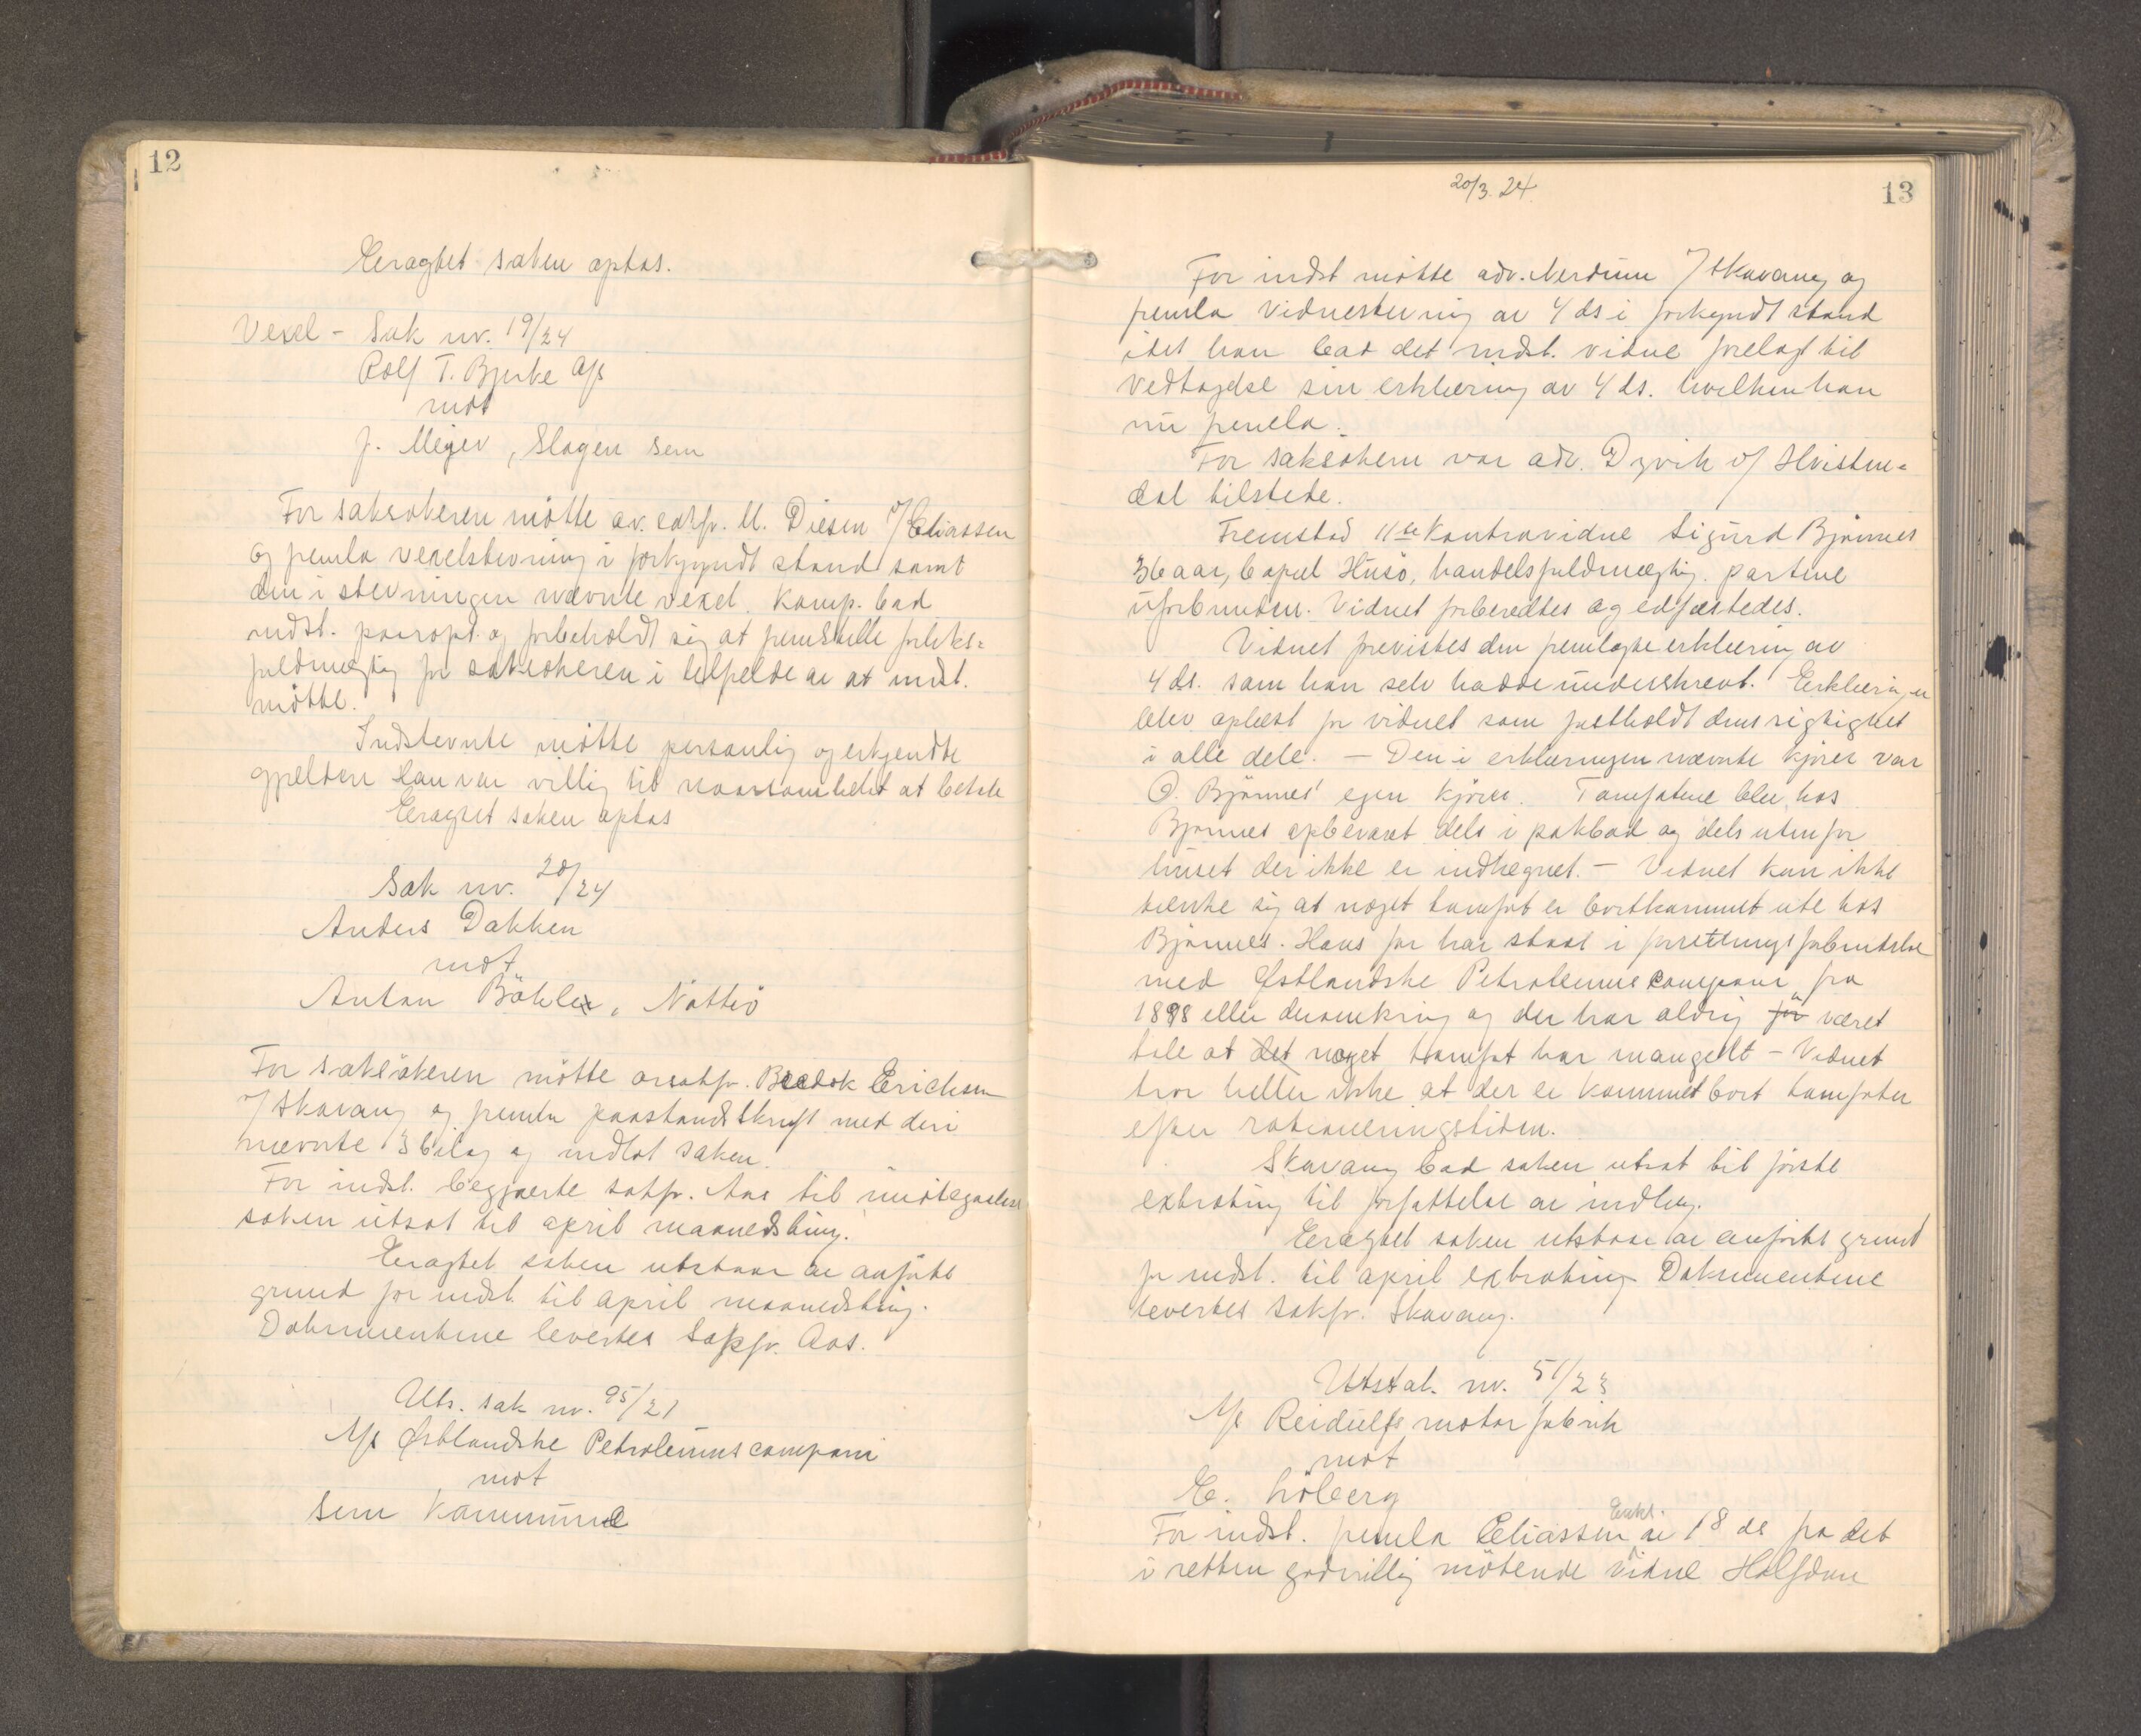 12
Eragtet saken optas.
Vexel - Sak nr. 19/24
Rolf T. Bjerke A/s
mot
J. Meyer, Slagen Sem
For saksøkeren møtte ov. sakfr. M. Diesen v/ Eliassen
og fremla vexelstevning i forkyndt stand samt
den i stevningen nævnte vexel. Komp. bad
indst. paaropt og forbeholdt sig at fremstille
fuldmægtig for saksøkeren i tilfælde av at indst.
møtte.
Indstevnte møtte personlig og erkjendte
gjælden han var villig til at betale
Eragtet saken optas
Sak nr. 20/24
Anders Dakken
mot
Anton Bøhle, Nøtterø
For saksøkeren møtte orsakfr. Erichsen
v/ Skavang og fremla paastandsskrift med deri
nævnte 3 bilag og indlot saken.
For indst. begjærte sakfr. Aas til imøtegaaelse
saken utsat til april maanedsting.
Eragtet saken utstaar av anførte
grund for indst. til april maanedsting.
Dokumentene levertes Sakfr. Aas.
Uts. sak nr. 95/21
A/s Østlandske Petroleumscompani
mot
Sem Kommune
20/3. 24.
13
For indst møtte adv. Nerdrum v/ Skavang og
fremla vidnestevning av 4 ds i forkyndt stand
idet han bad det indst. vidne forelagt til
vedtagelse sin erklæring av 4 ds. hvilken han
nu fremla.
For saksøkern var adv. Dyvik v/ Hvisten-
dal tilstede.
Fremstod 11te Kontravidne Sigurd Bjønnes
36 aar, bopæl Husø, handelsfuldmægtig. partene
uforbunden. Vidnet forberedtes og edfæstedes.
Vidnet forevistes den fremlagte erklæring av
4 ds. som han selv hadde underskrevt. Erklæringen
blev oplæst for vidnet som fastholdt dens rigtighet
i alle dele. - Den i erklæringen nævnte kjører var
O. Bjønnes' egen kjører. Tomfatene blev hos
Bjønnes opbevaret dels i pakbod og dels utenfor
huset der ikke er indhegnet. - Vidnet kan ikke
tænke sig at noget tomfat er bortkommet ute hos
Bjønnes. Hans far har staat i forretningsforbindelse
med Østlandske Petroleumscompani fra
1898 eller deromkring og der har aldrig før været
tale at det noget tomfat har manglet - Vidnet
tror heller ikke at der er kommet bort tomfater
efter rationeringstiden.
Skavang bad saken utsat til første
extrating til forfattelse av indlæg.
Eragtet saken utstaar av anførte grund
for indst. til april extrating Dokumentene
levertes sakfr. Skavang.
Utsat. nr. 51/23
A/s Reidulfs motorfabrik
mot
E. Løberg
For indst. fremla Eliassen Erkl. av 18 ds fra det
i retten godvillig møtende vidne Halfdan